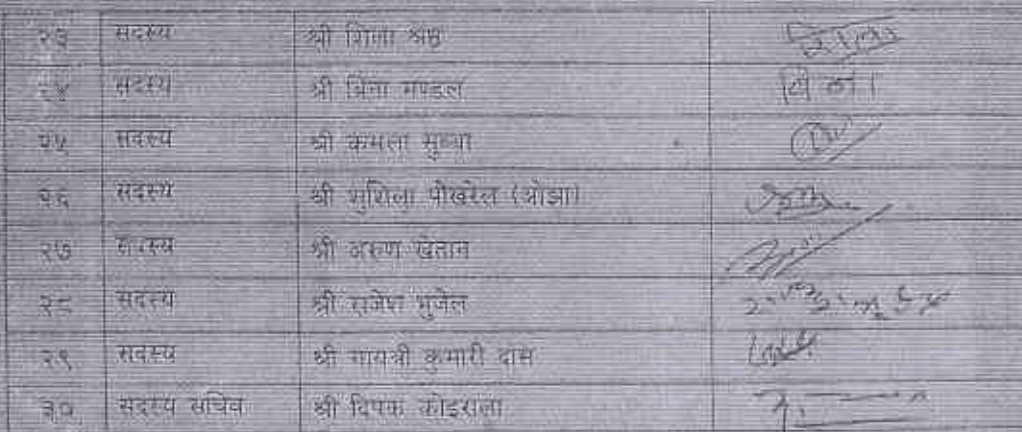 २३ सदस्य श्री शिला श्रेष्ठ
२४ सदस्य श्री बिना मण्डल बिना
२५ सदस्य श्री कमला सुब्बा
२६ सदस्य श्री सुशिला पोखरेल (ओझा)
२७ सदस्य श्री अरुण खेतान
२८ सदस्य श्री राजेश भुजेल
२९ सदस्य श्री गायत्री कुमारी दास
३० सदस्य सचिव श्री दिपक कोइराला